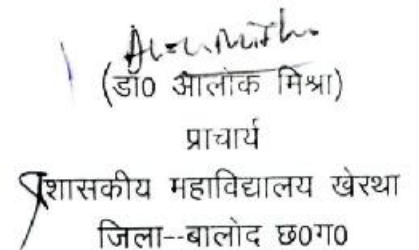 (डॉ0 आलोक मिश्रा)
प्राचार्य
शासकीय महाविद्यालय खेरथा
जिला--बालोद छ0ग0